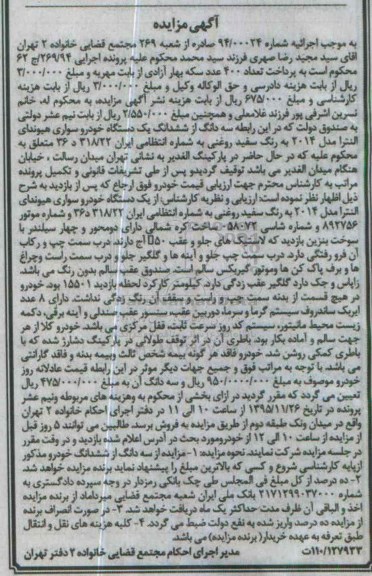 آگهی مزایده
به موجب اجرائیه شماره ۹۴/۰۰۰۲۴ صادره از شعبه ۲۶۹ مجتمع قضایی خانواده ۲ تهران
آقای سید مجید رضا صهری فرزند سید محمد محکوم علیه پرونده اجرایی ۲۶۹/۹۴/ج ۶۲
محکوم است به پرداخت تعداد ۴۰۰ عدد سکه بهار آزادی از بابت مهریه و مبلغ ۳/۰۰۰/۰۰۰
ریال از بابت هزینه دادرسی و حق الوکاله وکیل و مبلغ ۳/۰۰۰/۰۰۰ ریال از بابت هزینه
کارشناسی و مبلغ ۶۷۵/۰۰۰ ریال از بابت هزینه نشر آگهی مزایده، به محکوم له، خانم
نسرین اشرفی پور فرزند غلامعلی و همچنین مبلغ ۲/۵۵۰/۰۰۰ ریال از بابت نیم عشر دولتی
به صندوق دولت که در این رابطه سه دانگ از ششدانگ یک دستگاه خودرو سواری هیوندای
النترا مدل ۲۰۱۴ به رنگ سفید روغنی به شماره انتظامی ایران ۲۲ ۳۱۸ د ۳۶ متعلق به
محکوم علیه که در حال حاضر در پارکینگ الغدیر به نشانی تهران میدان رسالت ، خیابان
هنگام میدان الغدیر می باشد توقیف گردیدو پس از طی تشریفات قانونی و تکمیل پرونده
مراتب به کارشناس محترم جهت ارزیابی قیمت خودرو فوق ارجاع که پس از بازدید به شرح
ذیل اظهار نظر نموده است: ارزیابی و نظریه کارشناس: از یک دستگاه خودرو سواری هیوندای
النترا مدل ۲۰۱۴ به رنگ سفید روغنی به شماره انتظامی ایران ۲۲ ۳۱۸د۳۶ و شماره موتور
۸۹۲۷۵۶ و شماره شاسی ۵۸۰۷۲ ساخت کره شمالی دارای دومحور و چهار سیلندر با
سوخت بنزین بازدید که لاستیک های جلو و عقب ۵۰ج دارند. درب سمت چپ و رکاب
آن فرو رفتگی دارد. درب سمت چپ جلو و آینه ها و گلگیر جلو و درب سمت راست وچراغ
ها و برف پاک کن ها وموتور گیربکس سالم است. صندوق عقب سالم بدون رنگ می باشد.
زاپاس و جک دارد گلگیر عقب زدگی دارد. کیلومتر کارکرد لحظه بازدید ۱۵۵۰۱ بود. خودرو
در هیچ قسمت از بدنه سمت چپ و راست و سقف آن رنگ زدگی نداشت. دارای ۸ عدد
ایربگ ساندروف سیستم گرما و سرما، دوربین عقب، سنسور عقب، صندلی و آینه برقی، دکمه
زیست محیط مانیتور، سیستم کد روز سرعت ثابت، قفل مرکزی می باشد. خودرو کلا از هر
جهت سالم و آماده بکار بود. باطری آن در اثر توقف طولانی در پارکینگ دشارژ شده که با
باطری کمکی روشن شد. خودرو فاقد هر گونه بیمه شخص ثالث وبیمه بدنه و فاقد گارانتی
می باشد. با توجه به مراتب فوق و جمیع جهات دیگر موثر در این رابطه قیمت عادلانه روز
خودرو موصوف به مبلغ ۹۵۰/۰۰۰/۰۰۰ ریال و سه دانگ آن به مبلغ ۴۷۵/۰۰۰/۰۰۰ ریال
تعیین می گردد که مقرر گردید در ازای بخشی از محکوم به وهزینه های مربوطه ونیم عشر
پرونده در تاریخ ۱۳۹۵/۱۱/۲۶ از ساعت ۱۰ الی ۱۱ در دفتر اجرای احکام خانواده ۲ تهران
واقع در میدان ونک طبقه دوم از طریق مزایده به فروش برسد. طالبین می توانند ۵ روز قبل
از مزایده از ساعت ۱۰ الی ۱۲ از خودرومورد بحث در آدرس اعلام شده بازدید و در وقت مقرر
در جلسه مزایده شرکت نمایند. نحوه مزایده: ۱- مزایده از سه دانگ از ششدانگ خودرو مذکور
ازپایه کارشناسی شروع و کسی که بالاترین مبلغ را پیشنهاد نماید برنده مزایده خواهد شد.
۲- ده درصد از کل مبلغ فی المجلس طی چک بانکی رمزدار در وجه سپرده دادگستری به
شماره ۲۱۷۱۲۹۹۰۳۷۰۰۰ بانک ملی ایران شعبه مجتمع قضایی میرداماد از برنده مزایده
اخذ و الباقی آن ظرف مدت حداکثر یک ماه دریافت خواهد شد. ۳- در صورت انصراف برنده
از مزایده ده درصد واریز شده به نفع دولت ضبط می گردد. ۴- کلیه هزینه های نقل و انتقال
طبق تعرفه به عهده خریدار( برنده مزایده) می باشد.
۱۱۰/۱۲۷۹۳۳ت مدیر اجرای احکام مجتمع قضایی خانواده ۲ دفتر تهران